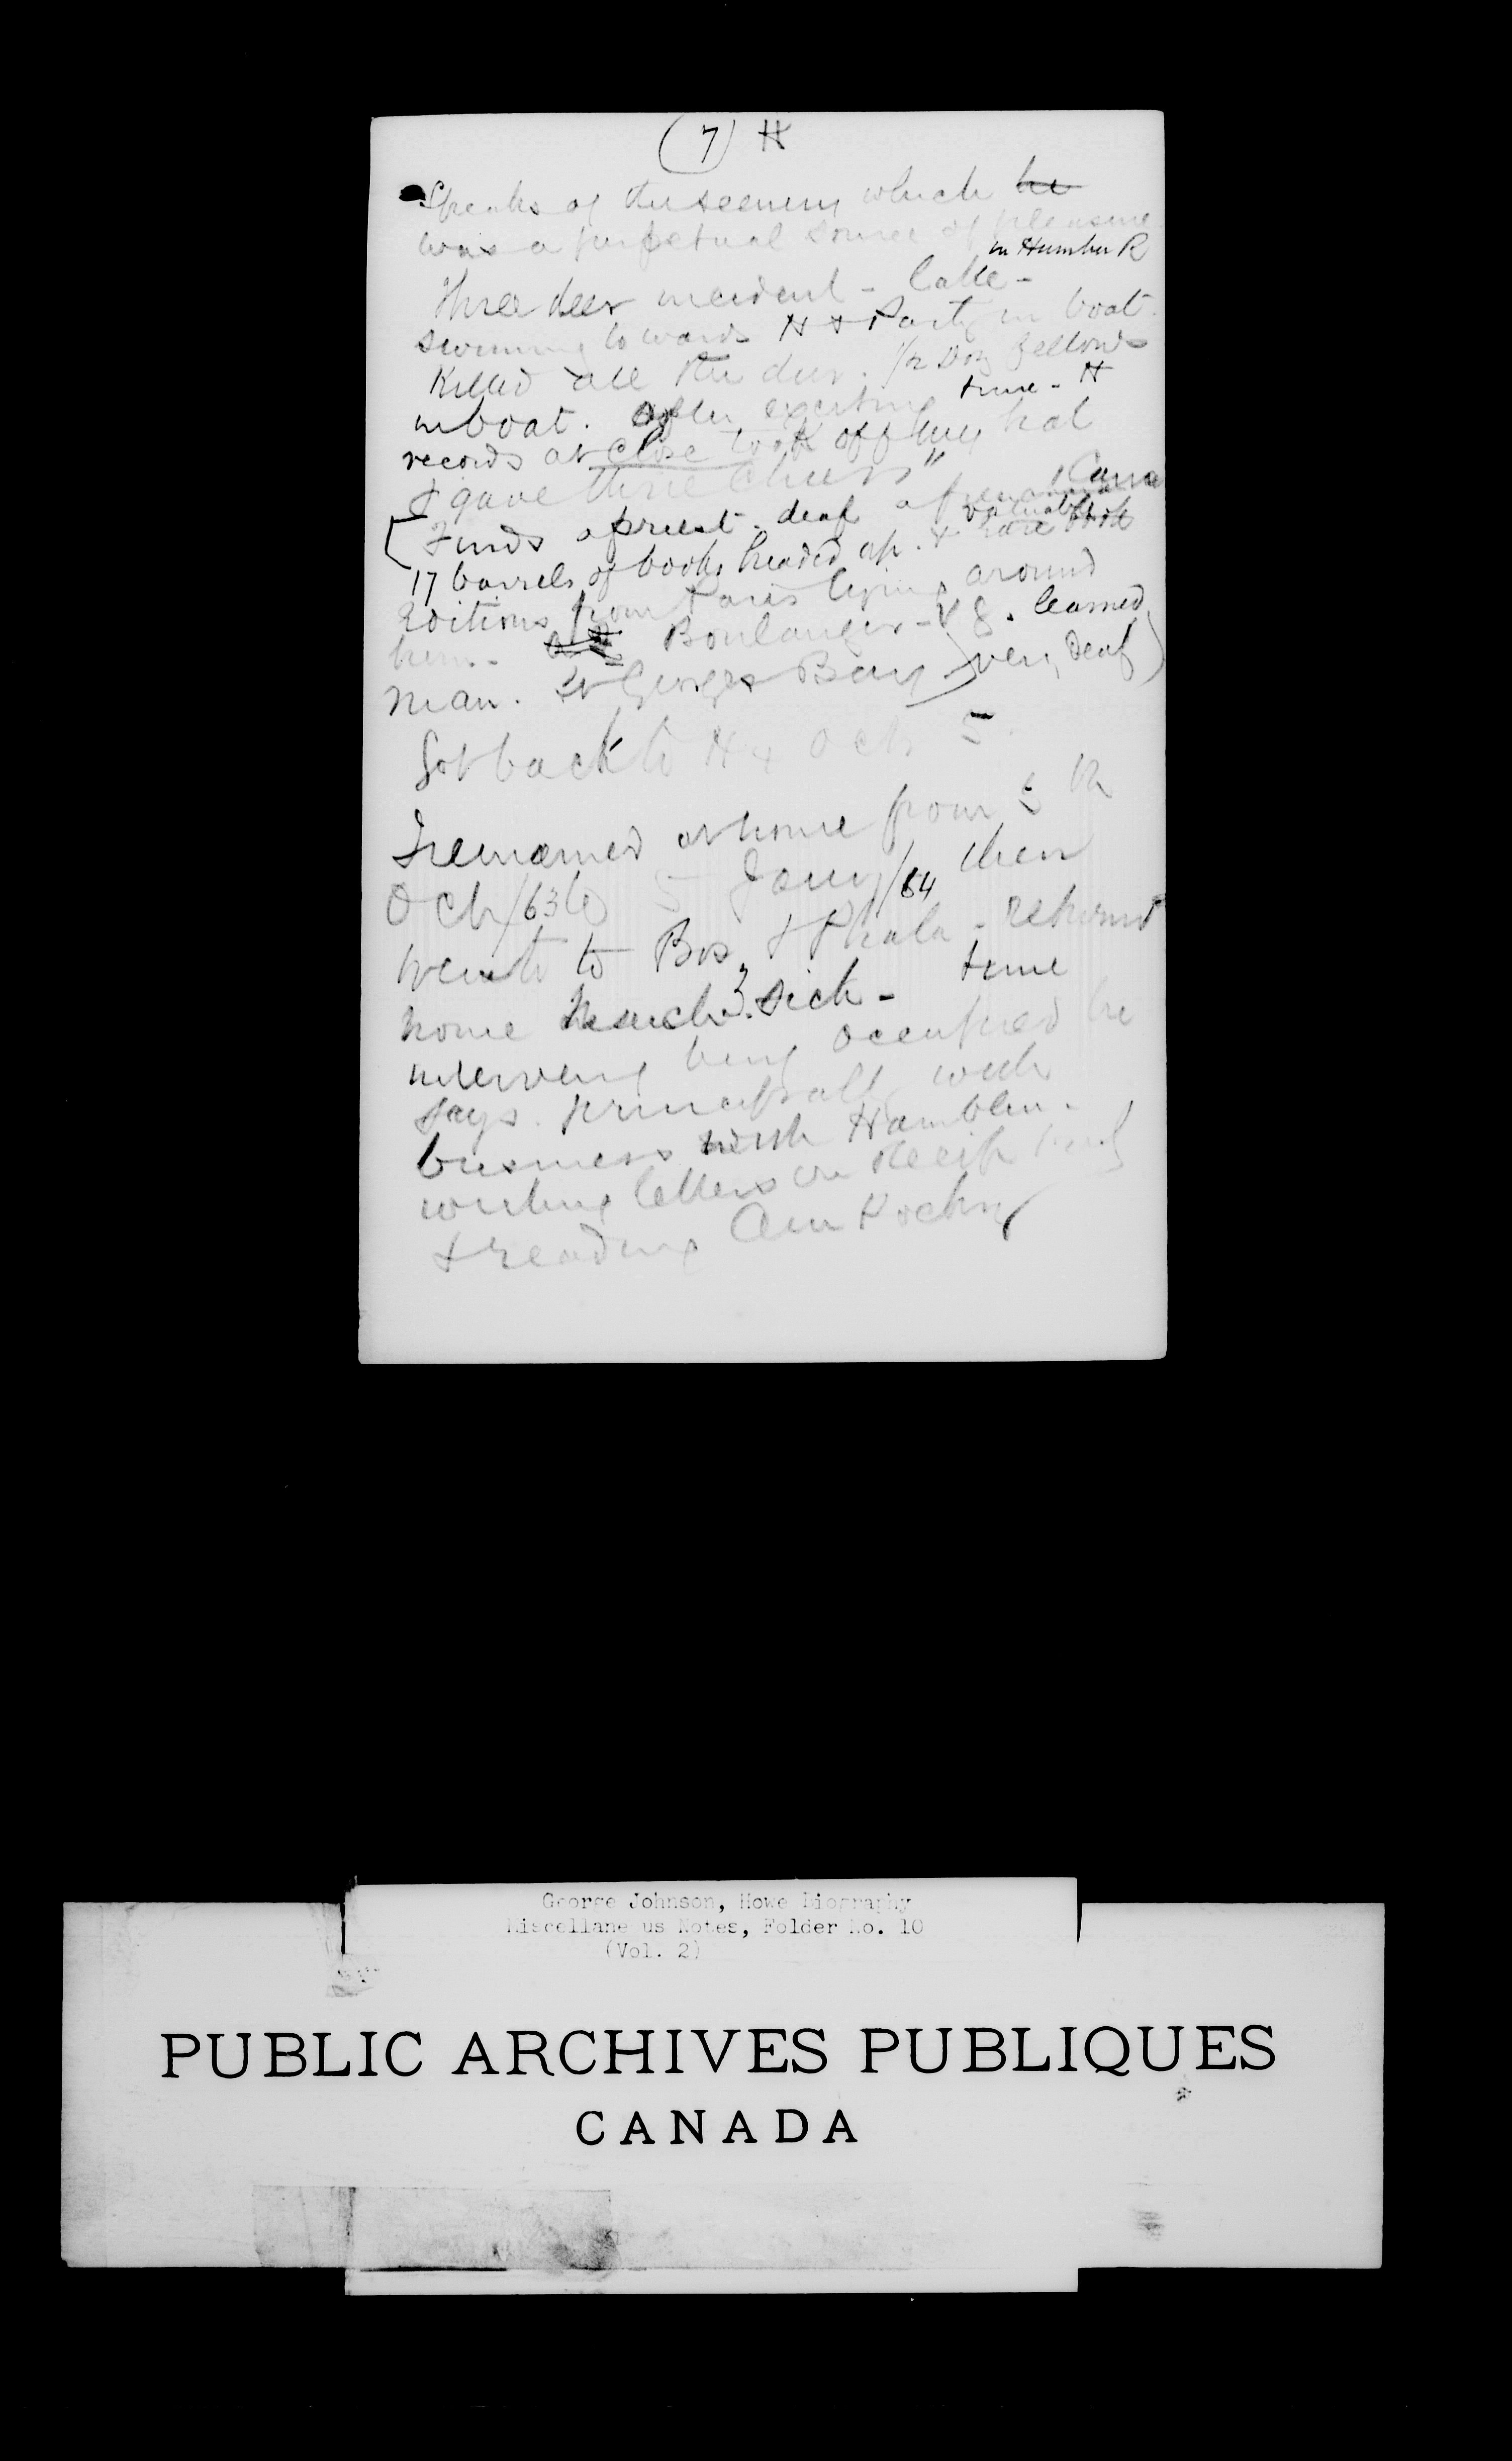 (7) H
Speaks of the scenery which he
was a perpetual source of pleasure
in Humber R
Three deer incident - Calle -
swimming towards H & Party in boat.
Killed all the deer. 1/2 Doz fellows
in boat. After exciting time - H
records at close took off my hat
& gave three cheers"
[Finds a priest - deaf
17 barrels of books headed up. & rare valuable
Editions from Paris lying around
him. Boulanger - V G. learned
man. St Georges Bay) very deaf)
Got back to Hx Oct 5.
I remained at home from 5th
Oct/63 to 5 Jany/64 then
went to Bos & Phila - returned
home March 3. sick - time
intervening being occupied he
says. principally with
business with Hamblin.
writing letters on Recip
& reading
George Johnson, Howe Biography
Miscellaneous Notes, Folder No. 10
(Vol. 2)
PUBLIC ARCHIVES PUBLIQUES
CANADA